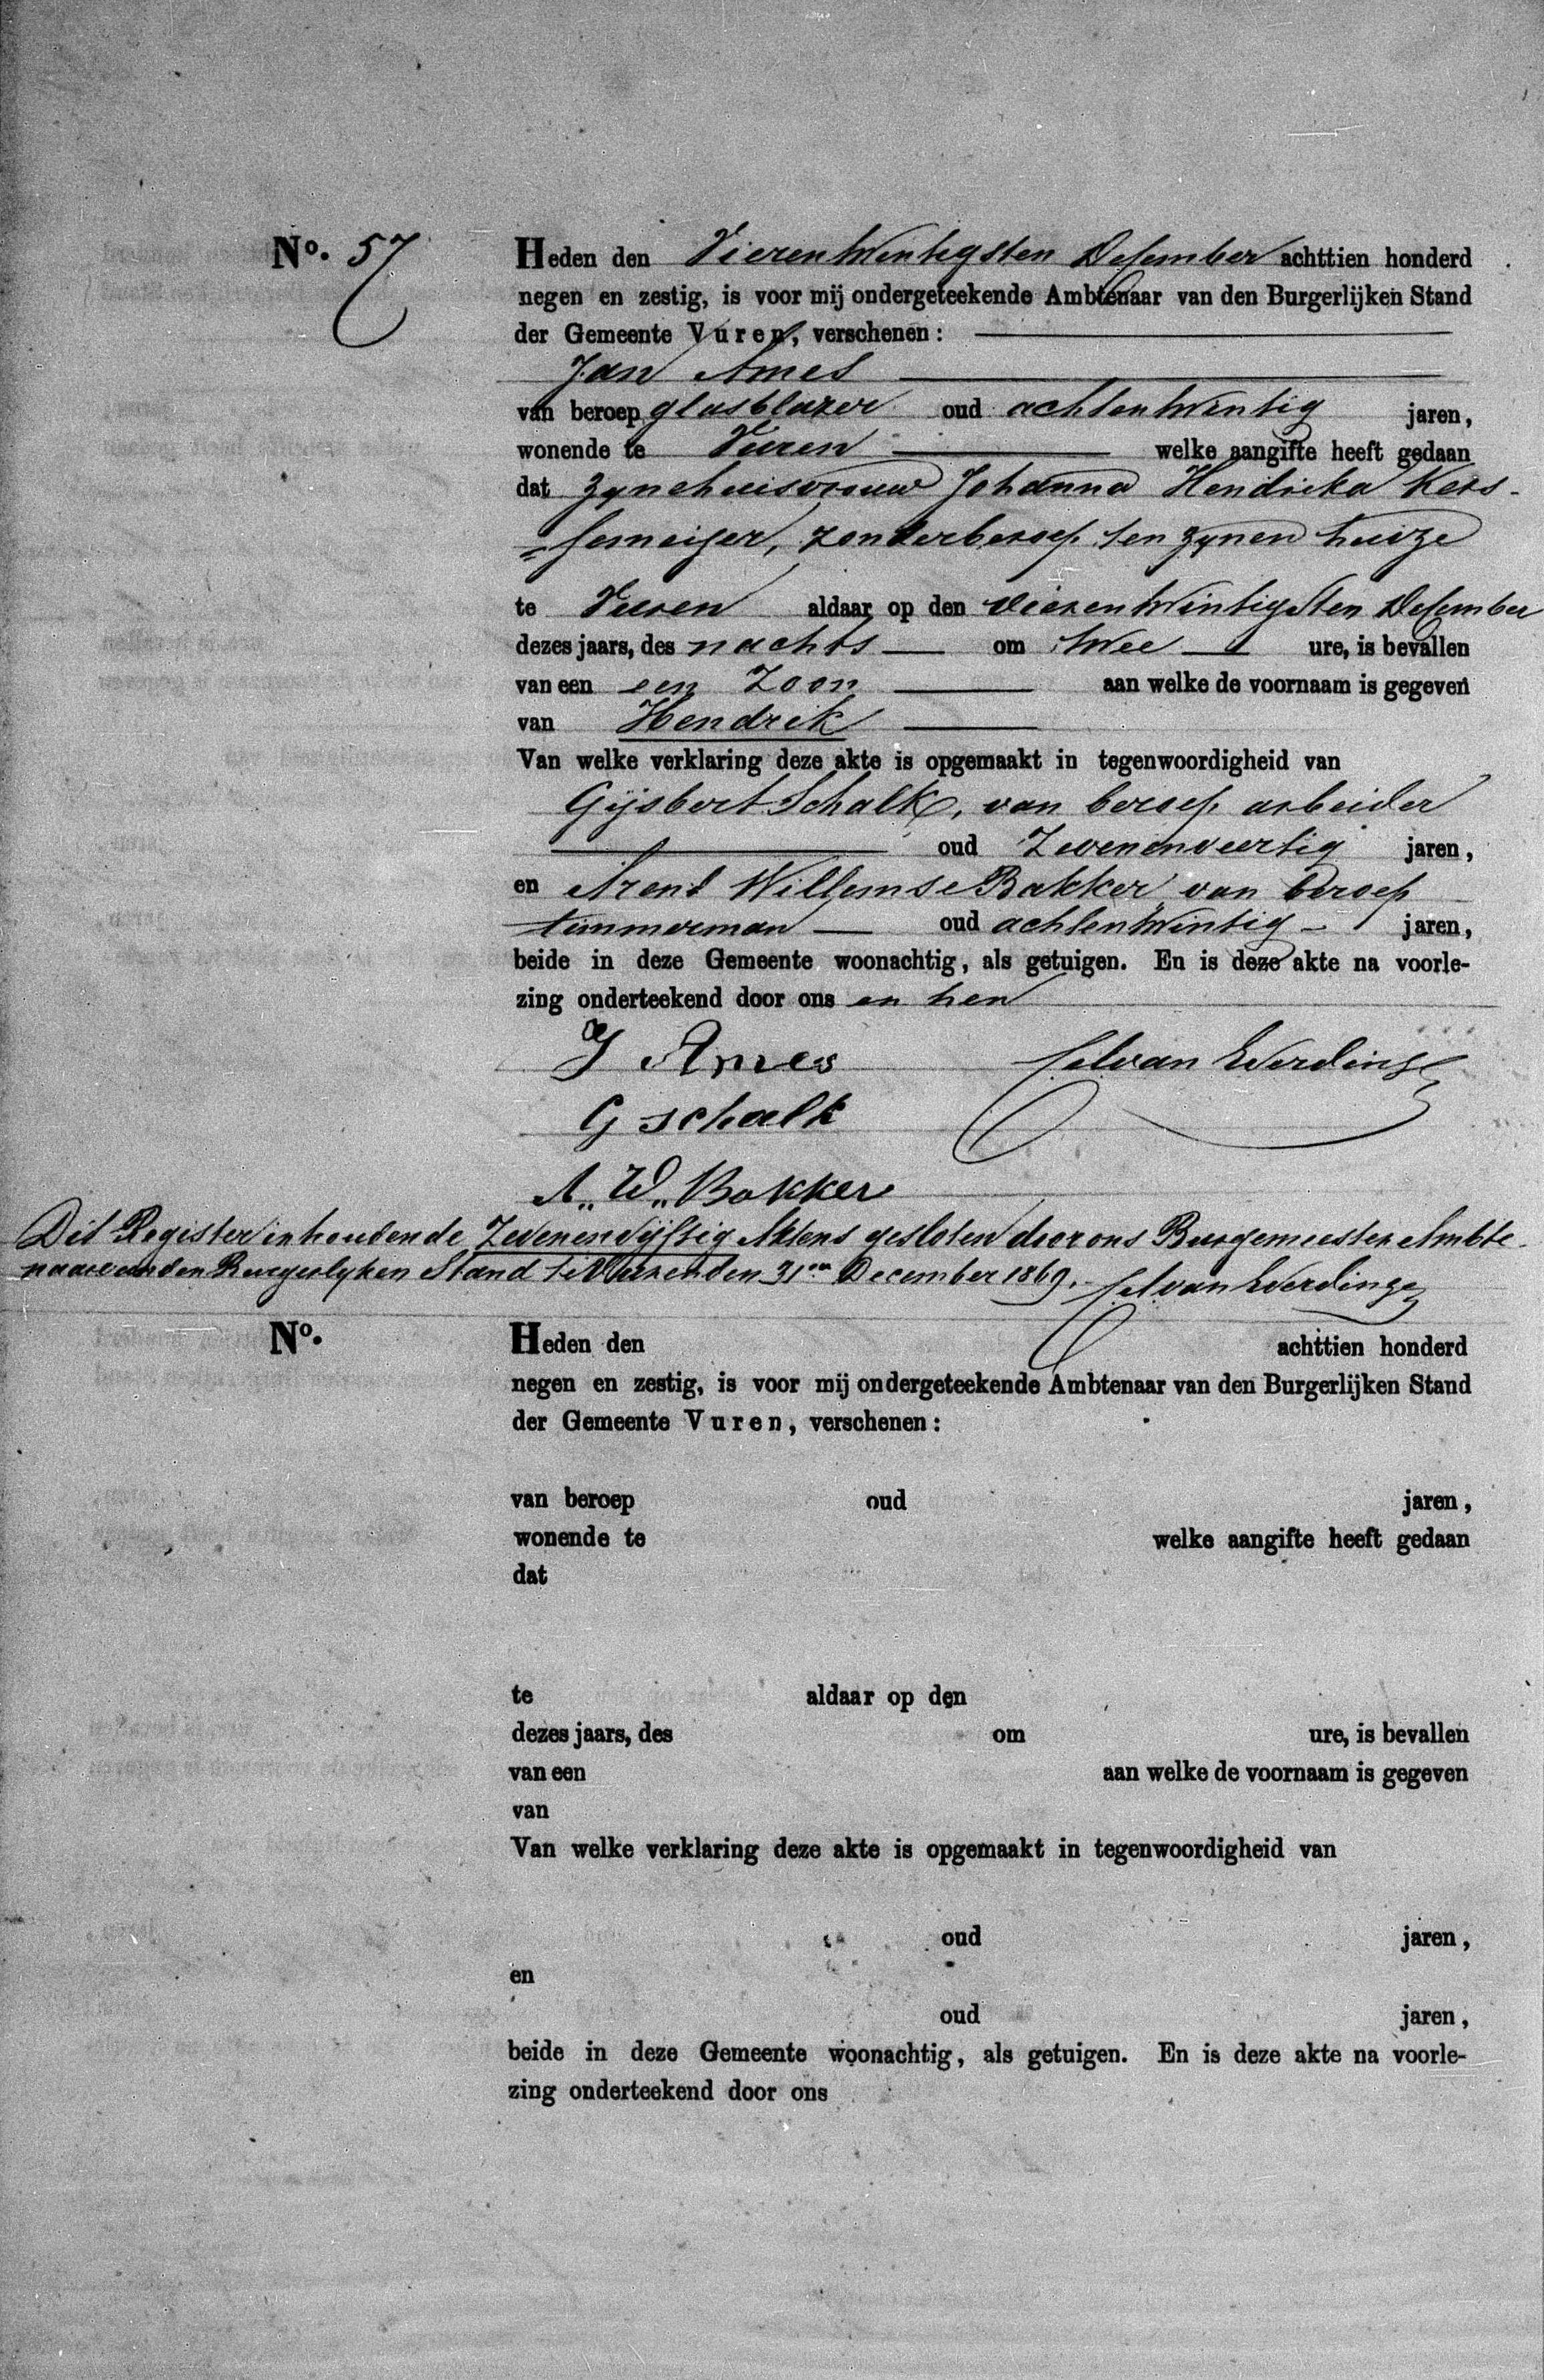 No. 57
Heden den Vierentwintigsten December achttien honderd
negen en zestig, is voor mij ondergeteekende Ambtenaar van den Burgerlijken Stand
der Gemeente Vuren, verschenen:
Jan Ames
van beroep glasblazer oud achtentwintig jaren,
wonende te Vuren welke aangifte heeft gedaan
dat zynehuisvrouw Johanna Hendrika Kers-
=semeijer, zonderberoep ten zynen huize
te Vuren aldaar op den vierentwintigsten December
dezes jaars, des nachts om twee ure, is bevallen
van een een Zoon aan welke de voornaam is gegeven
van Hendrik
Van welke verklaring deze akte is opgemaakt in tegenwoordigheid van
Gijsbert Schalk, van beroep arbeider
oud Zevenenveertig jaren,
en Arend Willemse Bakker van beroep
timmerman oud achtentwintig jaren,
beide in deze Gemeente woonachtig, als getuigen. En is deze akte na voorle-
zing onderteekend door ons en hen
J Ames
van Everdinge
G schalk
A. W. Bakker
Dit Register inhoudende Zevenenvijftig Aktens gesloten door ons Burgemeester Ambte-
naar van den Burgerlyken Stand te Vuren den 31en December 1869. van Everdinge
No. Heden den achttien honderd
negen en zestig, is voor mij ondergeteekende Ambtenaar van den Burgerlijken Stand
der Gemeente Vuren, verschenen:
van beroep oud jaren,
wonende te welke aangifte heeft gedaan
dat
te aldaar op den
dezes jaars, des om ure, is bevallen
van een aan welke de voornaam is gegeven
van
Van welke verklaring deze akte is opgemaakt in tegenwoordigheid van
oud jaren,
en
oud jaren,
beide in deze Gemeente woonachtig, als getuigen. En is deze akte na voorle-
zing onderteekend door ons